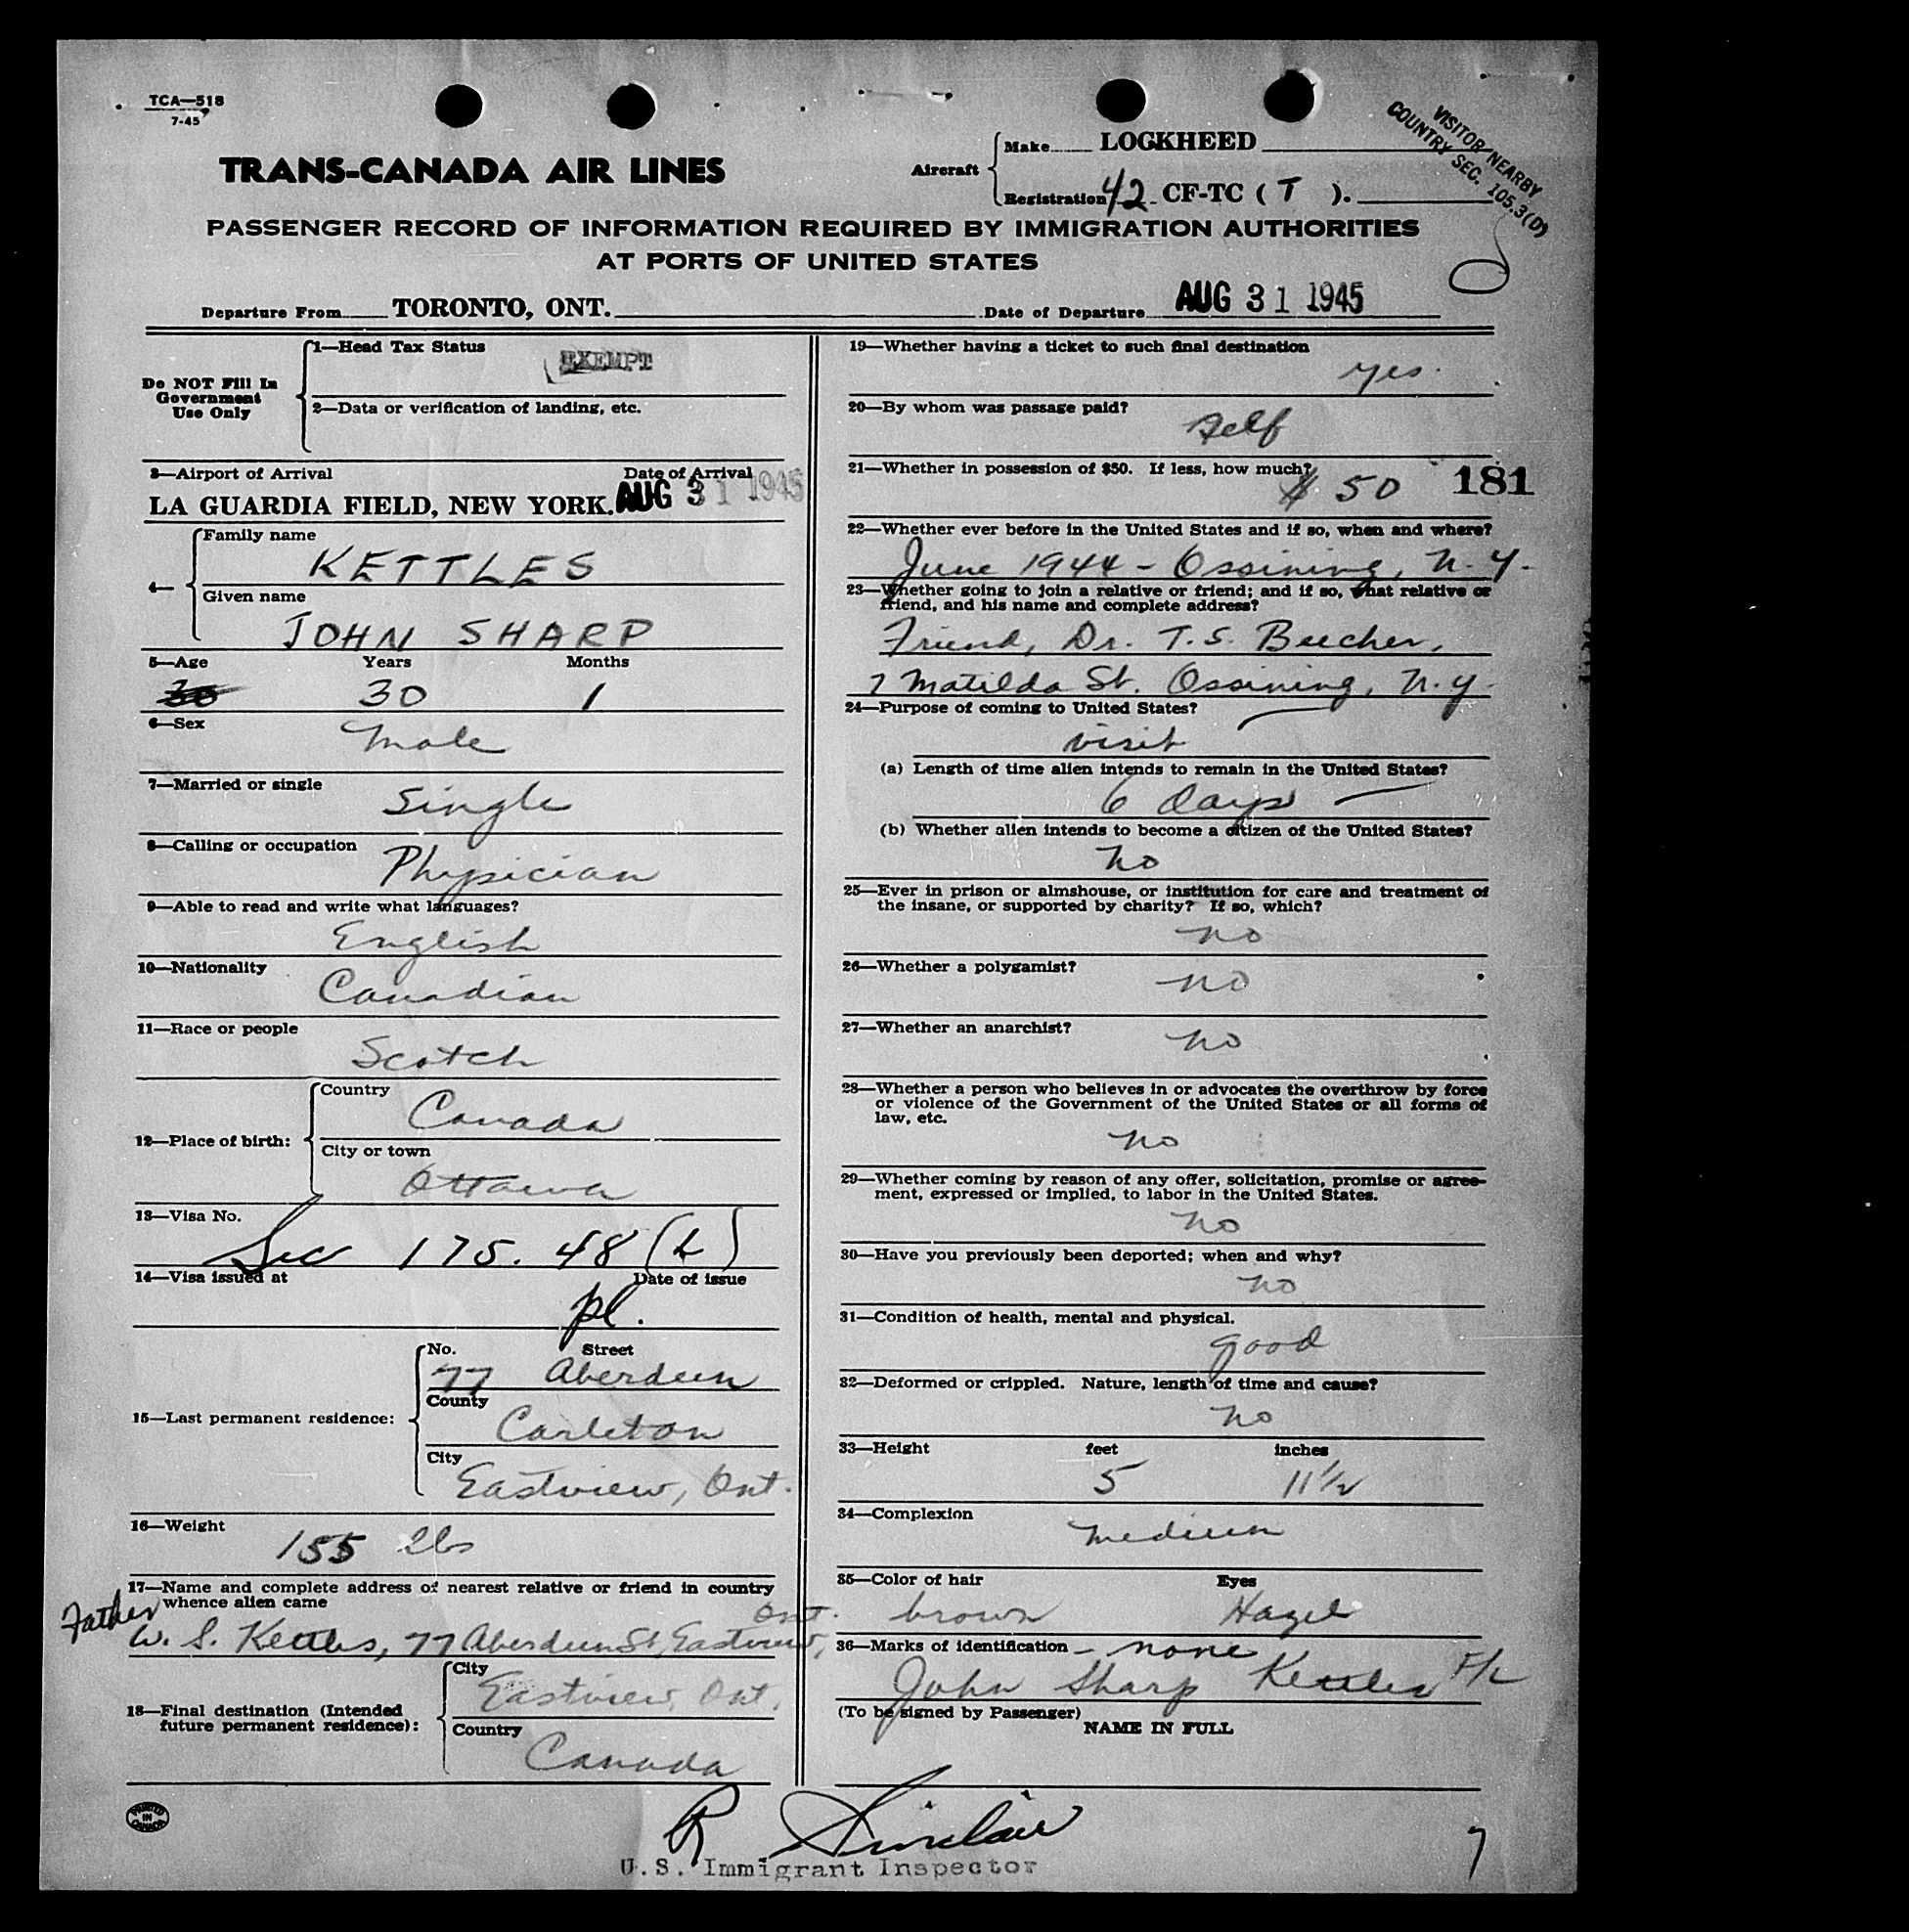 TCA—518
7-45
VISITOR NEARBY
COUNTRY SEC. 105.3(D)
TRANS-CANADA AIR LINES
Aircraft
Make LOCKHEED
Registration 42 CF-TC ( T ).
PASSENGER RECORD OF INFORMATION REQUIRED BY IMMIGRATION AUTHORITIES
AT PORTS OF UNITED STATES
Departure From TORONTO, ONT. Date of Departure AUG 31 1945
Do NOT Fill In
Government
Use Only
1—Head Tax Status
EXEMPT
2—Data or verification of landing, etc.
3—Airport of Arrival Date of Arrival
LA GUARDIA FIELD, NEW YORK. AUG 31 1945
4—
Family name
KETTLES
Given name
JOHN SHARP
5—Age Years Months
30 30 1
6—Sex
Male
7—Married or single
Single
8—Calling or occupation
Physician
9—Able to read and write what languages?
English
10—Nationality
Canadian
11—Race or people
Scotch
12—Place of birth:
Country
Canada
City or town
Ottawa
13—Visa No.
Sec 175.48 (L)
14—Visa issued at Date of issue
pl.
15—Last permanent residence:
No. Street
77 Aberdeen
County
Carleton
City
Eastview, Ont.
16—Weight
155 lbs
17—Name and complete address of nearest relative or friend in country
whence alien came
Father
W. S. Kettles, 77 Aberdeen St, Eastview, Ont.
18—Final destination (Intended
future permanent residence):
City
Eastview, Ont.
Country
Canada
19—Whether having a ticket to such final destination
yes.
20—By whom was passage paid?
Self
21—Whether in possession of $50. If less, how much?
$ 50 181
22—Whether ever before in the United States and if so, when and where?
June 1944 - Ossining, N.Y.
23—Whether going to join a relative or friend; and if so, what relative or
friend, and his name and complete address?
Friend, Dr. T. S. Beecher,
7 Matilda St. Ossining, N.Y.
24—Purpose of coming to United States?
visit
(a) Length of time alien intends to remain in the United States?
6 days
(b) Whether alien intends to become a citizen of the United States?
no
25—Ever in prison or almshouse, or institution for care and treatment of
the insane, or supported by charity? If so, which?
no
26—Whether a polygamist?
no
27—Whether an anarchist?
no
28—Whether a person who believes in or advocates the overthrow by force
or violence of the Government of the United States or all forms of
law, etc.
no
29—Whether coming by reason of any offer, solicitation, promise or agree-
ment, expressed or implied, to labor in the United States.
no
30—Have you previously been deported; when and why?
no
31—Condition of health, mental and physical.
good
32—Deformed or crippled. Nature, length of time and cause?
no
33—Height feet inches
5 11 1/2
34—Complexion
medium
35—Color of hair Eyes
brown Hazel
36—Marks of identification - none
John Sharp Kettles F/L
(To be signed by Passenger)
NAME IN FULL
PRINTED
IN
CANADA
R Sinclair
U.S. Immigrant Inspector
7